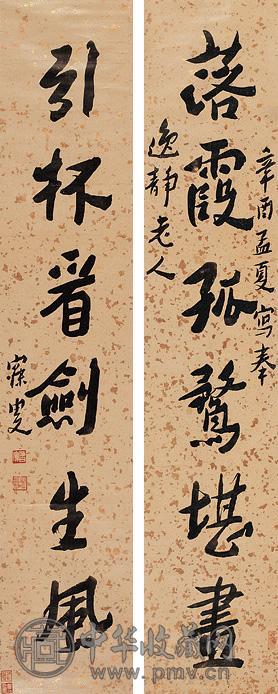 辛酉孟夏寫奉
落霞孤鶩堪畫
逸靜老人
引杯看劍生風
寐叟
中华收藏网
www.pmv.cn